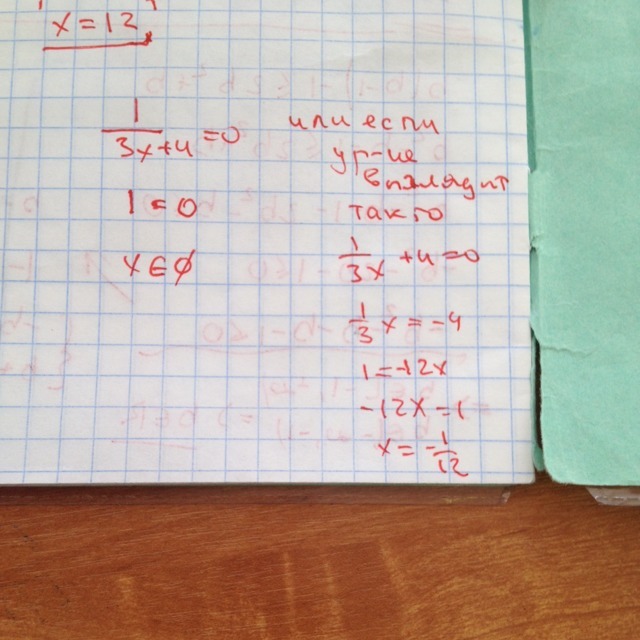 x = 12
1/(3x+4) = 0
1 = 0
x ∈ ∅
или если
ур-ие
выглядит
так то
1/(3x) + 4 = 0
1/3 x = -4
1 = -12x
-12x = 1
x = -1/12